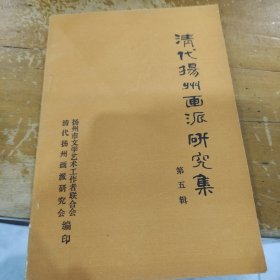 清代揚州画派研究集
第五辑
扬州市文学艺术工作者联合会
清代扬州画派研究会
编印